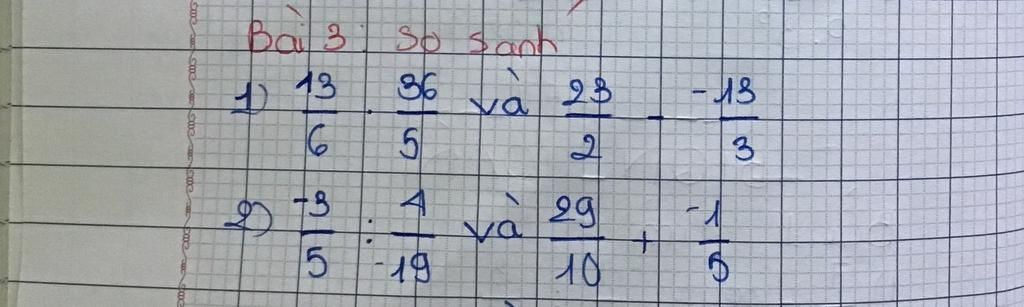 Bài 3: So sánh
1) 13/6 . 36/5 và 23/2 - -13/3
2) -3/5 : 4/-19 và 29/10 + -1/5